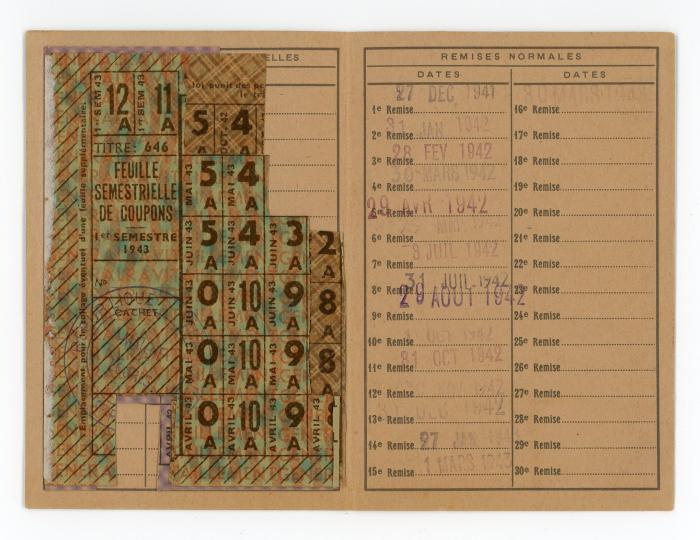 ELLES
loi punit des pe
1er SEM 43
12
A
1er SEM 43
11
A
TITRE: 646
FEUILLE
SEMESTRIELLE
DE COUPONS
1er SEMESTRE
1943
No
CACHET
Emplacement pour le collage éventuel d'une feuille supplémentaire.
5 4
A A
MAI 43 5 A MAI 43 4 A
JUIN 43 5 A JUIN 43 4 A JUIN 43 3 A
2 A
JUIN 43 0 A JUIN 43 10 A JUIN 43 9 A
8 A
MAI 43 0 A MAI 43 10 A MAI 43 9 A
8 A
AVRIL 43 0 A AVRIL 43 10 A AVRIL 43 9 A AVRIL 43
AVRIL 43
REMISES NORMALES
DATES DATES
27 DEC 1941
1e Remise 16e Remise
31 JAN 1942
2e Remise 17e Remise
28 FEV 1942
3e Remise 18e Remise
30 MARS 1942
4e Remise 19e Remise
29 AVR 1942
20e Remise
6e Remise 21e Remise
8 JUIL 1942
7e Remise 22e Remise
31 JUIL 1942
8e Remise 23e Remise
29 AOUT 1942
9e Remise 24e Remise
10e Remise 25e Remise
31 OCT 1942
11e Remise 26e Remise
12e Remise 27e Remise
13e Remise 28e Remise
27 JAN
14e Remise 29e Remise
1 MARS 1943
15e Remise 30e Remise